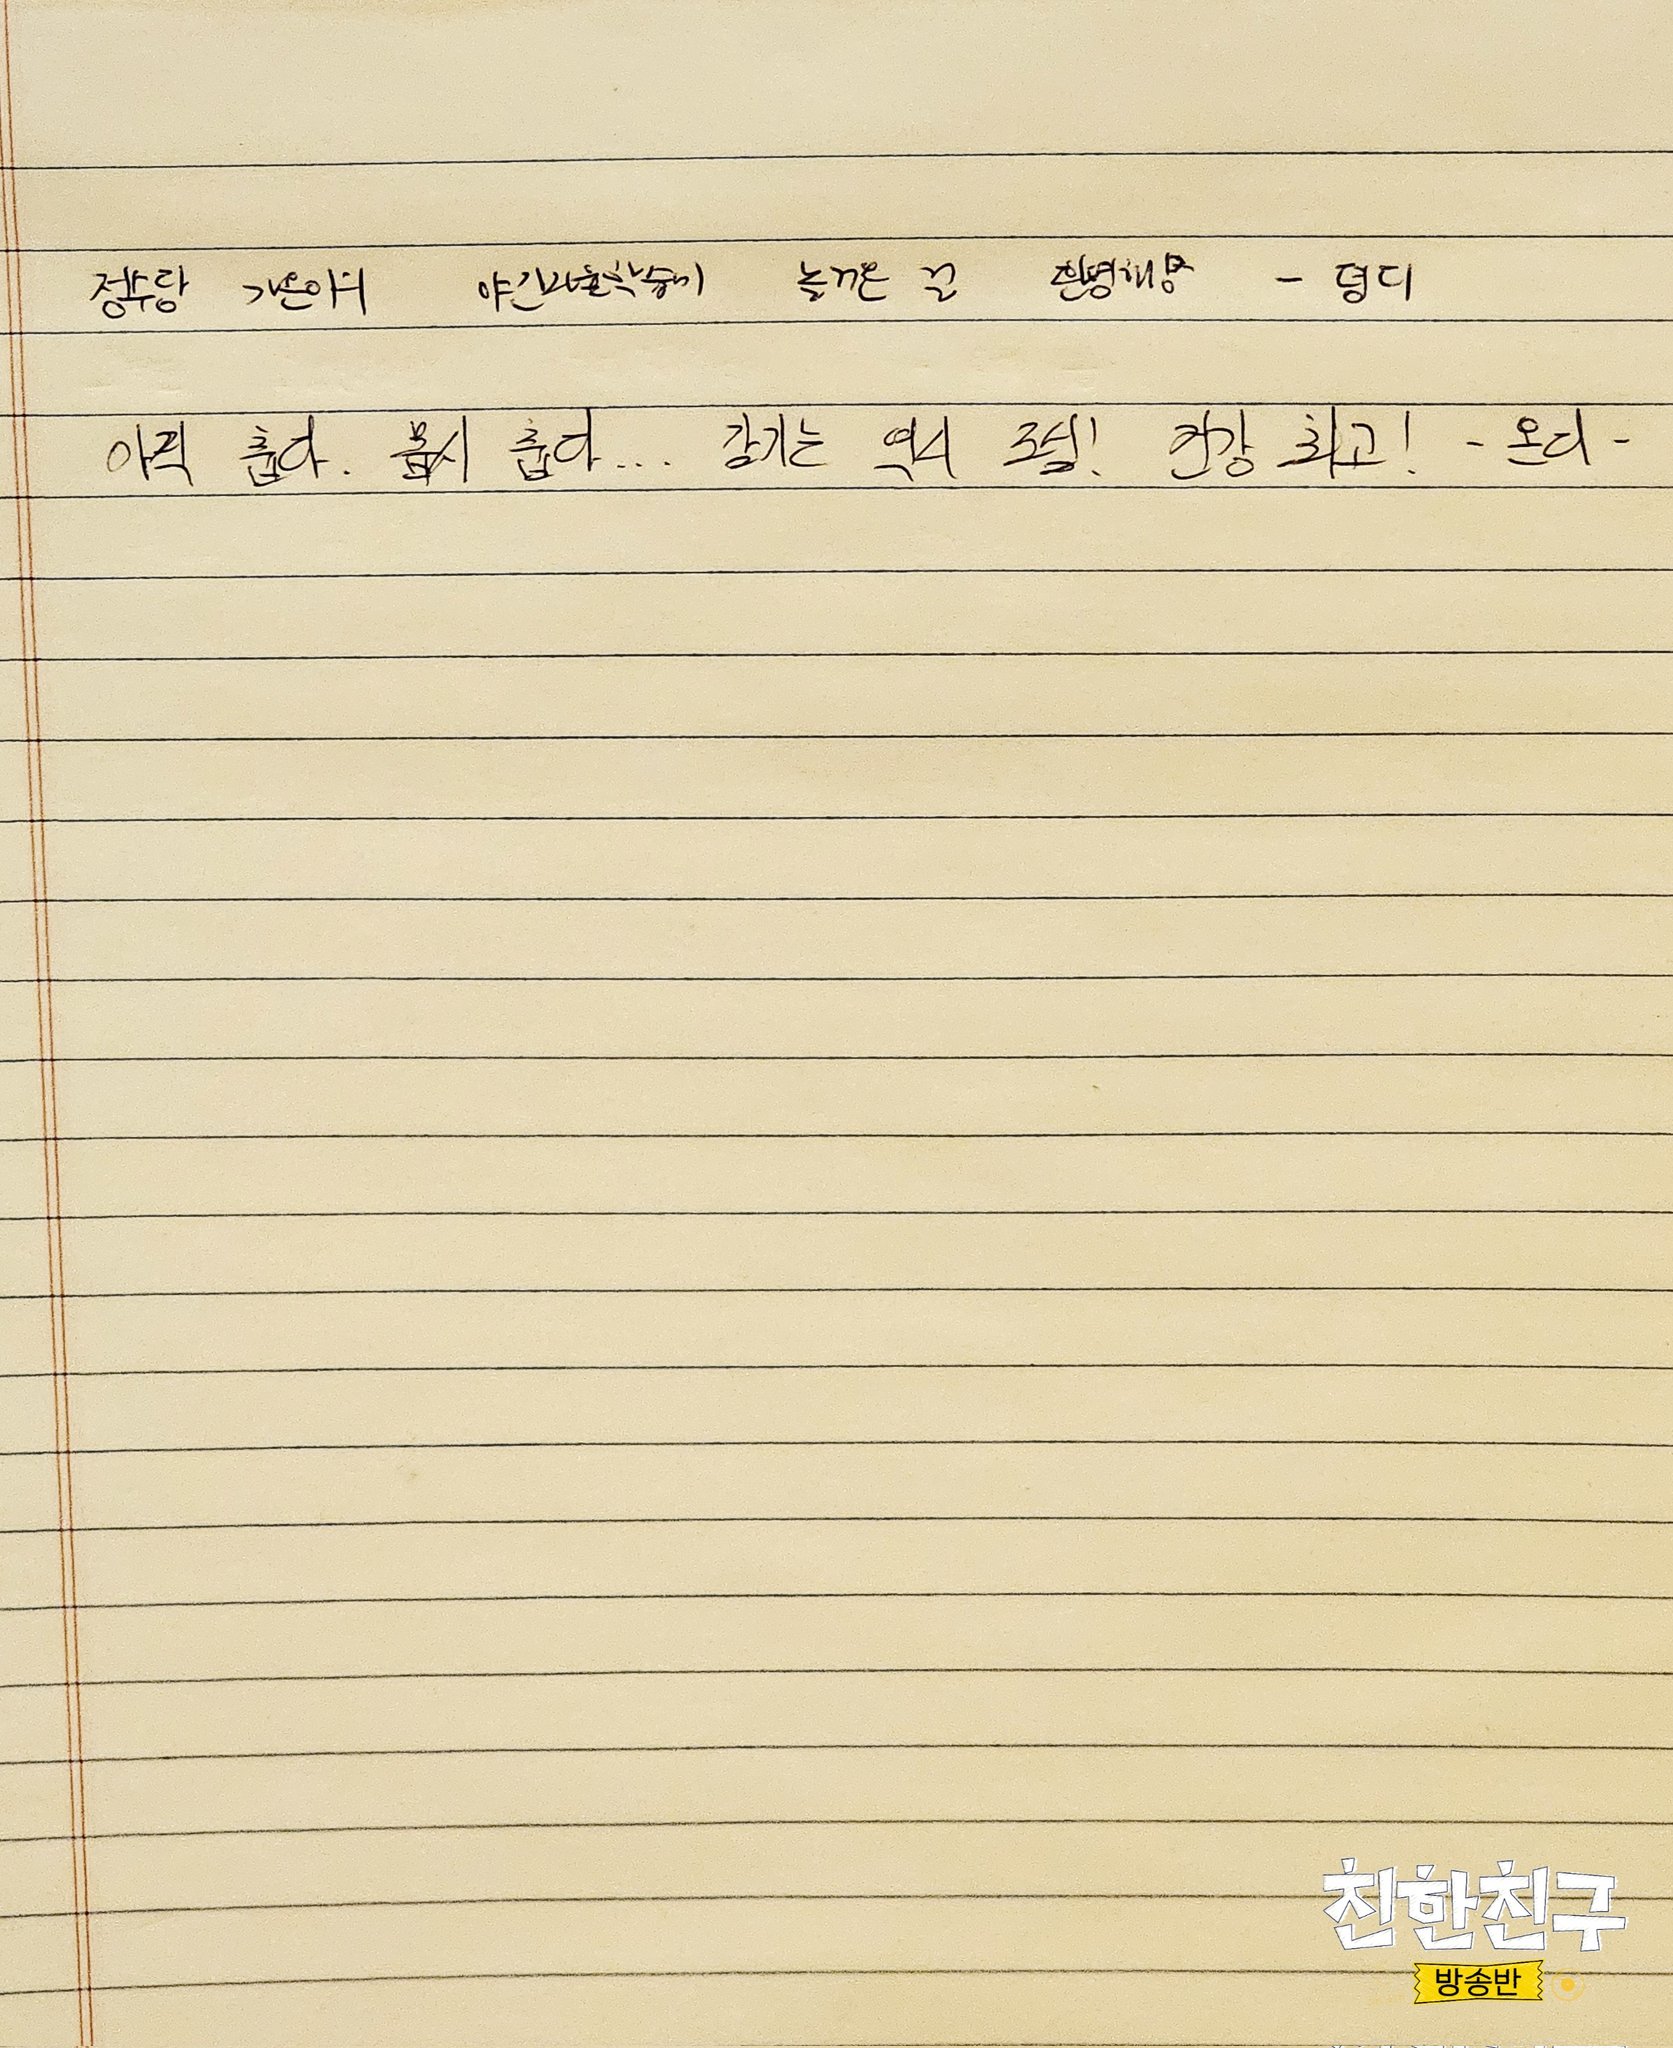 정수랑 가은이의 야간자율학습이 놀꺼은 꼭 환영해용 - 덩디
아직 춥다. 몹시 춥다... 감기는 역시 조심! 건강 최고! - 온디 -
친한친구
방송반